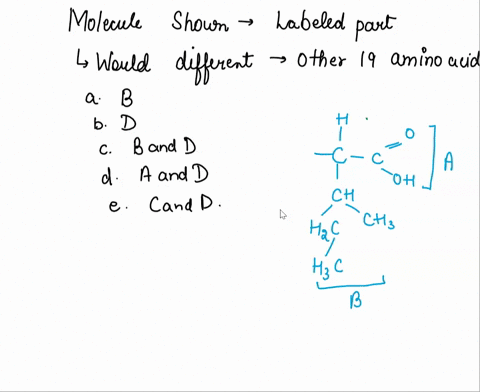 Molecule Shown → Labeled part
↳ Would different → Other 19 amino acid
a. B
b. D
c. B and D
d. A and D
e. C and D.
H
O
— C — C
OH
A
CH
H₂C
CH₃
H₃C
B